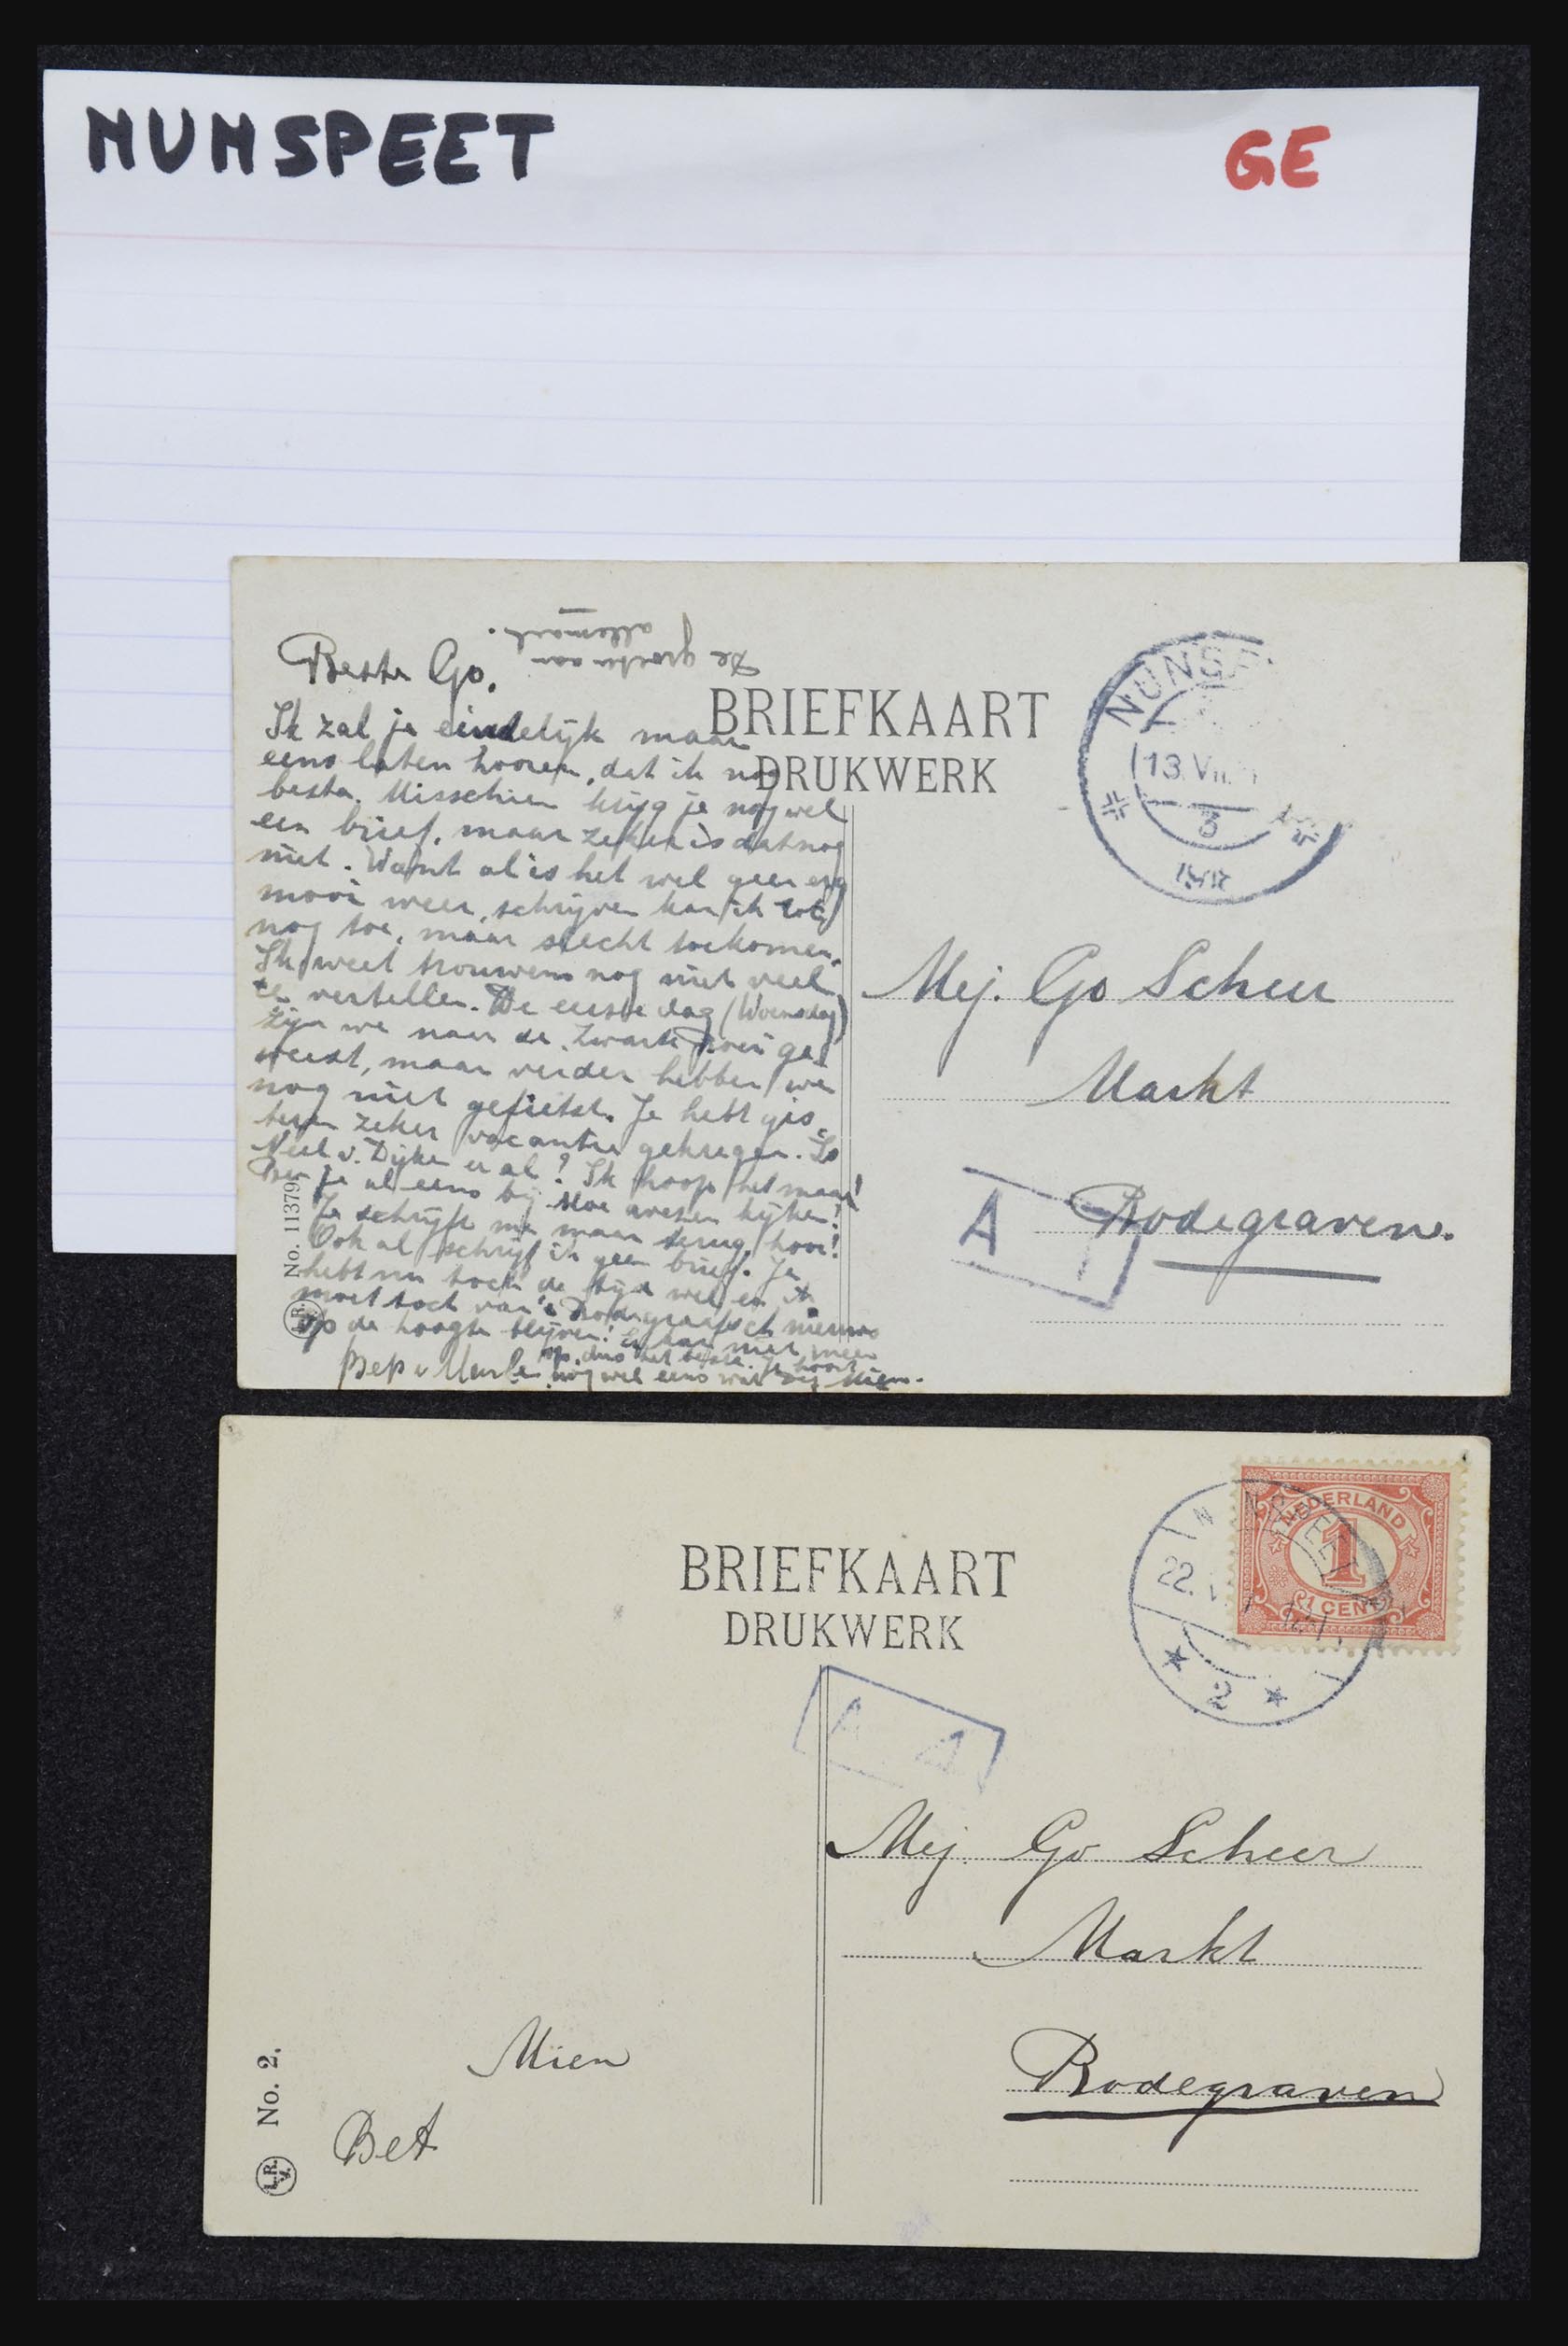 NUNSPEET
GE
De groeten aan
allemaal.
Beste Go.
Ik zal je eindelijk maar
eens laten hooren, dat ik nog
besta. Misschien krijg je nog wel
een brief, maar zeker is dat nog
niet. Want al is het wel geen erg
mooi weer, schrijven kan ik tot
nog toe, maar slecht toekomen.
Ik weet trouwens nog niet veel
te vertellen. De eerste dag (Woensdag)
zijn we naar de Zwarte Boer ge
weest, maar verder hebben we
nog niet gefietst. Je hebt gis
teren zeker vacantie gekregen. Is
Neel v. Dijke er al? Ik hoop het maar!
Ben je al eens bij wezen kijken?
Je schrijft me maar terug, hoor!
Ook al schrijf ik geen brief. Je
hebt nu toch de tijd wel en ik
moet toch van 't Bodegraafsch nieuws
op de hoogte blijven! Er kan niet meer
op, dus het beste. Je hoort
Bep v nog wel eens wat bij Mien.
BRIEFKAART
DRUKWERK
NUNSP
13.VII.
3
Mej. Go Scheer
Markt
Bodegraven.
A
No. 11379
L.R.
BRIEFKAART
DRUKWERK
NEDERLAND
1
1 CENT
N NSPEET
22.
2
A
Mej. Go Scheer
Markt
Bodegraven
Mien
Bet
No. 2.
L.R.